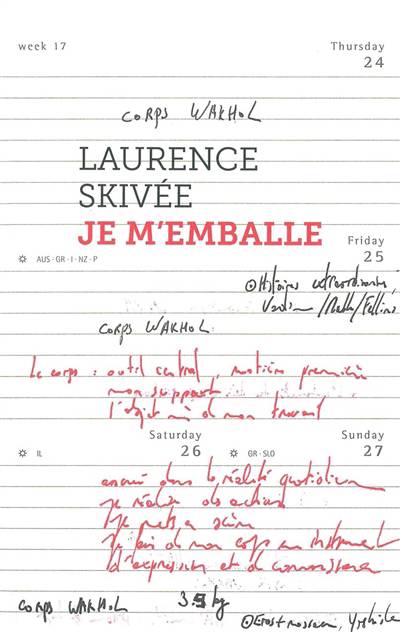 week 17 Thursday
24
CORPS WARHOL
LAURENCE
SKIVÉE
JE M'EMBALLE
Friday
AUS·GR·I·NZ·P 25
Histoires extraordinaires,
Vadim/Malle/Fellini
CORPS WARHOL
Le corps : outil central, matière première
mon support
l'objet de mon travail
Saturday Sunday
IL 26 GR·SLO 27
dans la réalité quotidienne
je réalise des actions
je mets en scène
je fais de mon corps un instrument
d'expression et de connaissance
CORPS WARHOL 3.5 kg